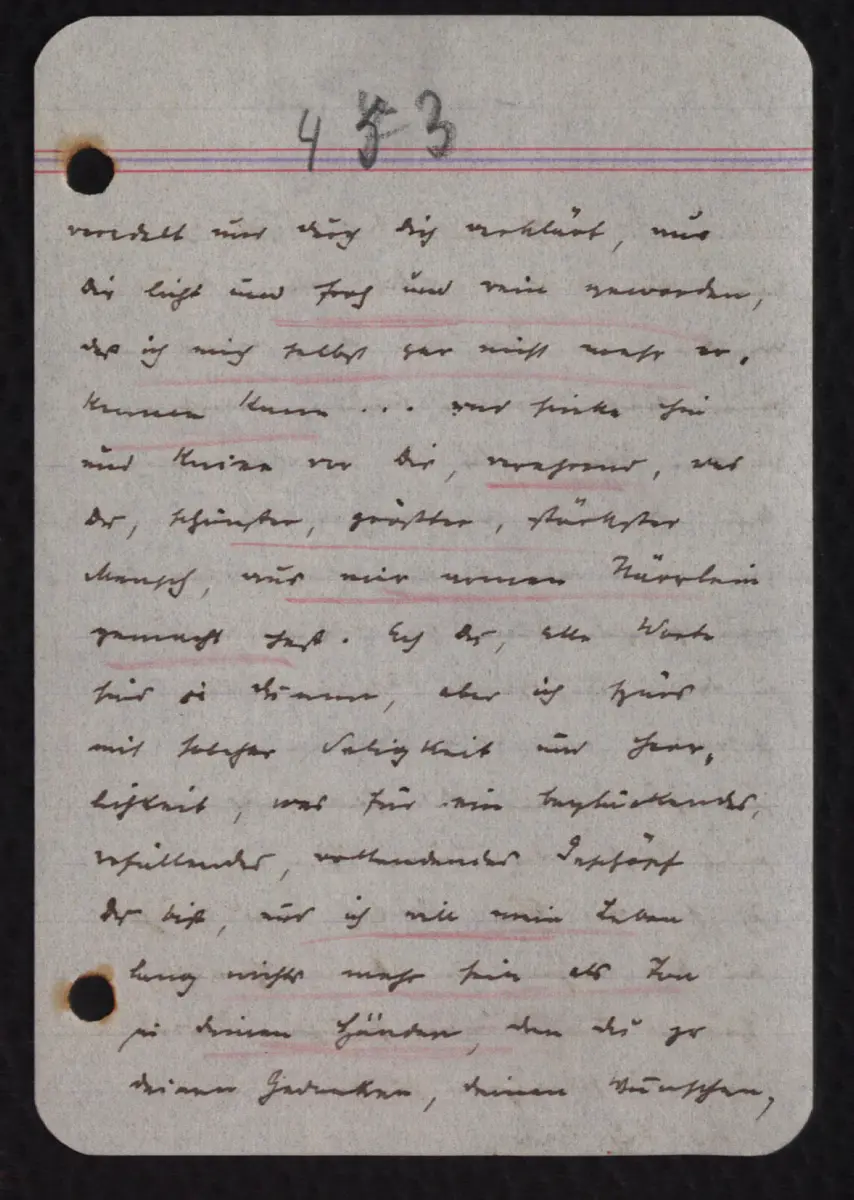 4 5 3
veredelt und durch dich verklärt, aus
dir licht und froh und rein geworden,
daß ich mich selbst gar nicht mehr er-
kennen kann ... und sinke hin
und kniee vor dir, verehrend, was
du, schönster, größter, stärkster
Mensch, aus mir armen Närrlein
gemacht hast. Ach du, alle Worte
sind so dumm, aber ich spür
mit solcher Seligkeit und Herr-
lichkeit, was für ein beglückendes,
erfüllendes, vollendendes Geschöpf
du bist, und ich will mein Leben
lang nichts mehr sein als Ton
in deinen Händen, den du zu
deinen Gedanken, deinen Wünschen,